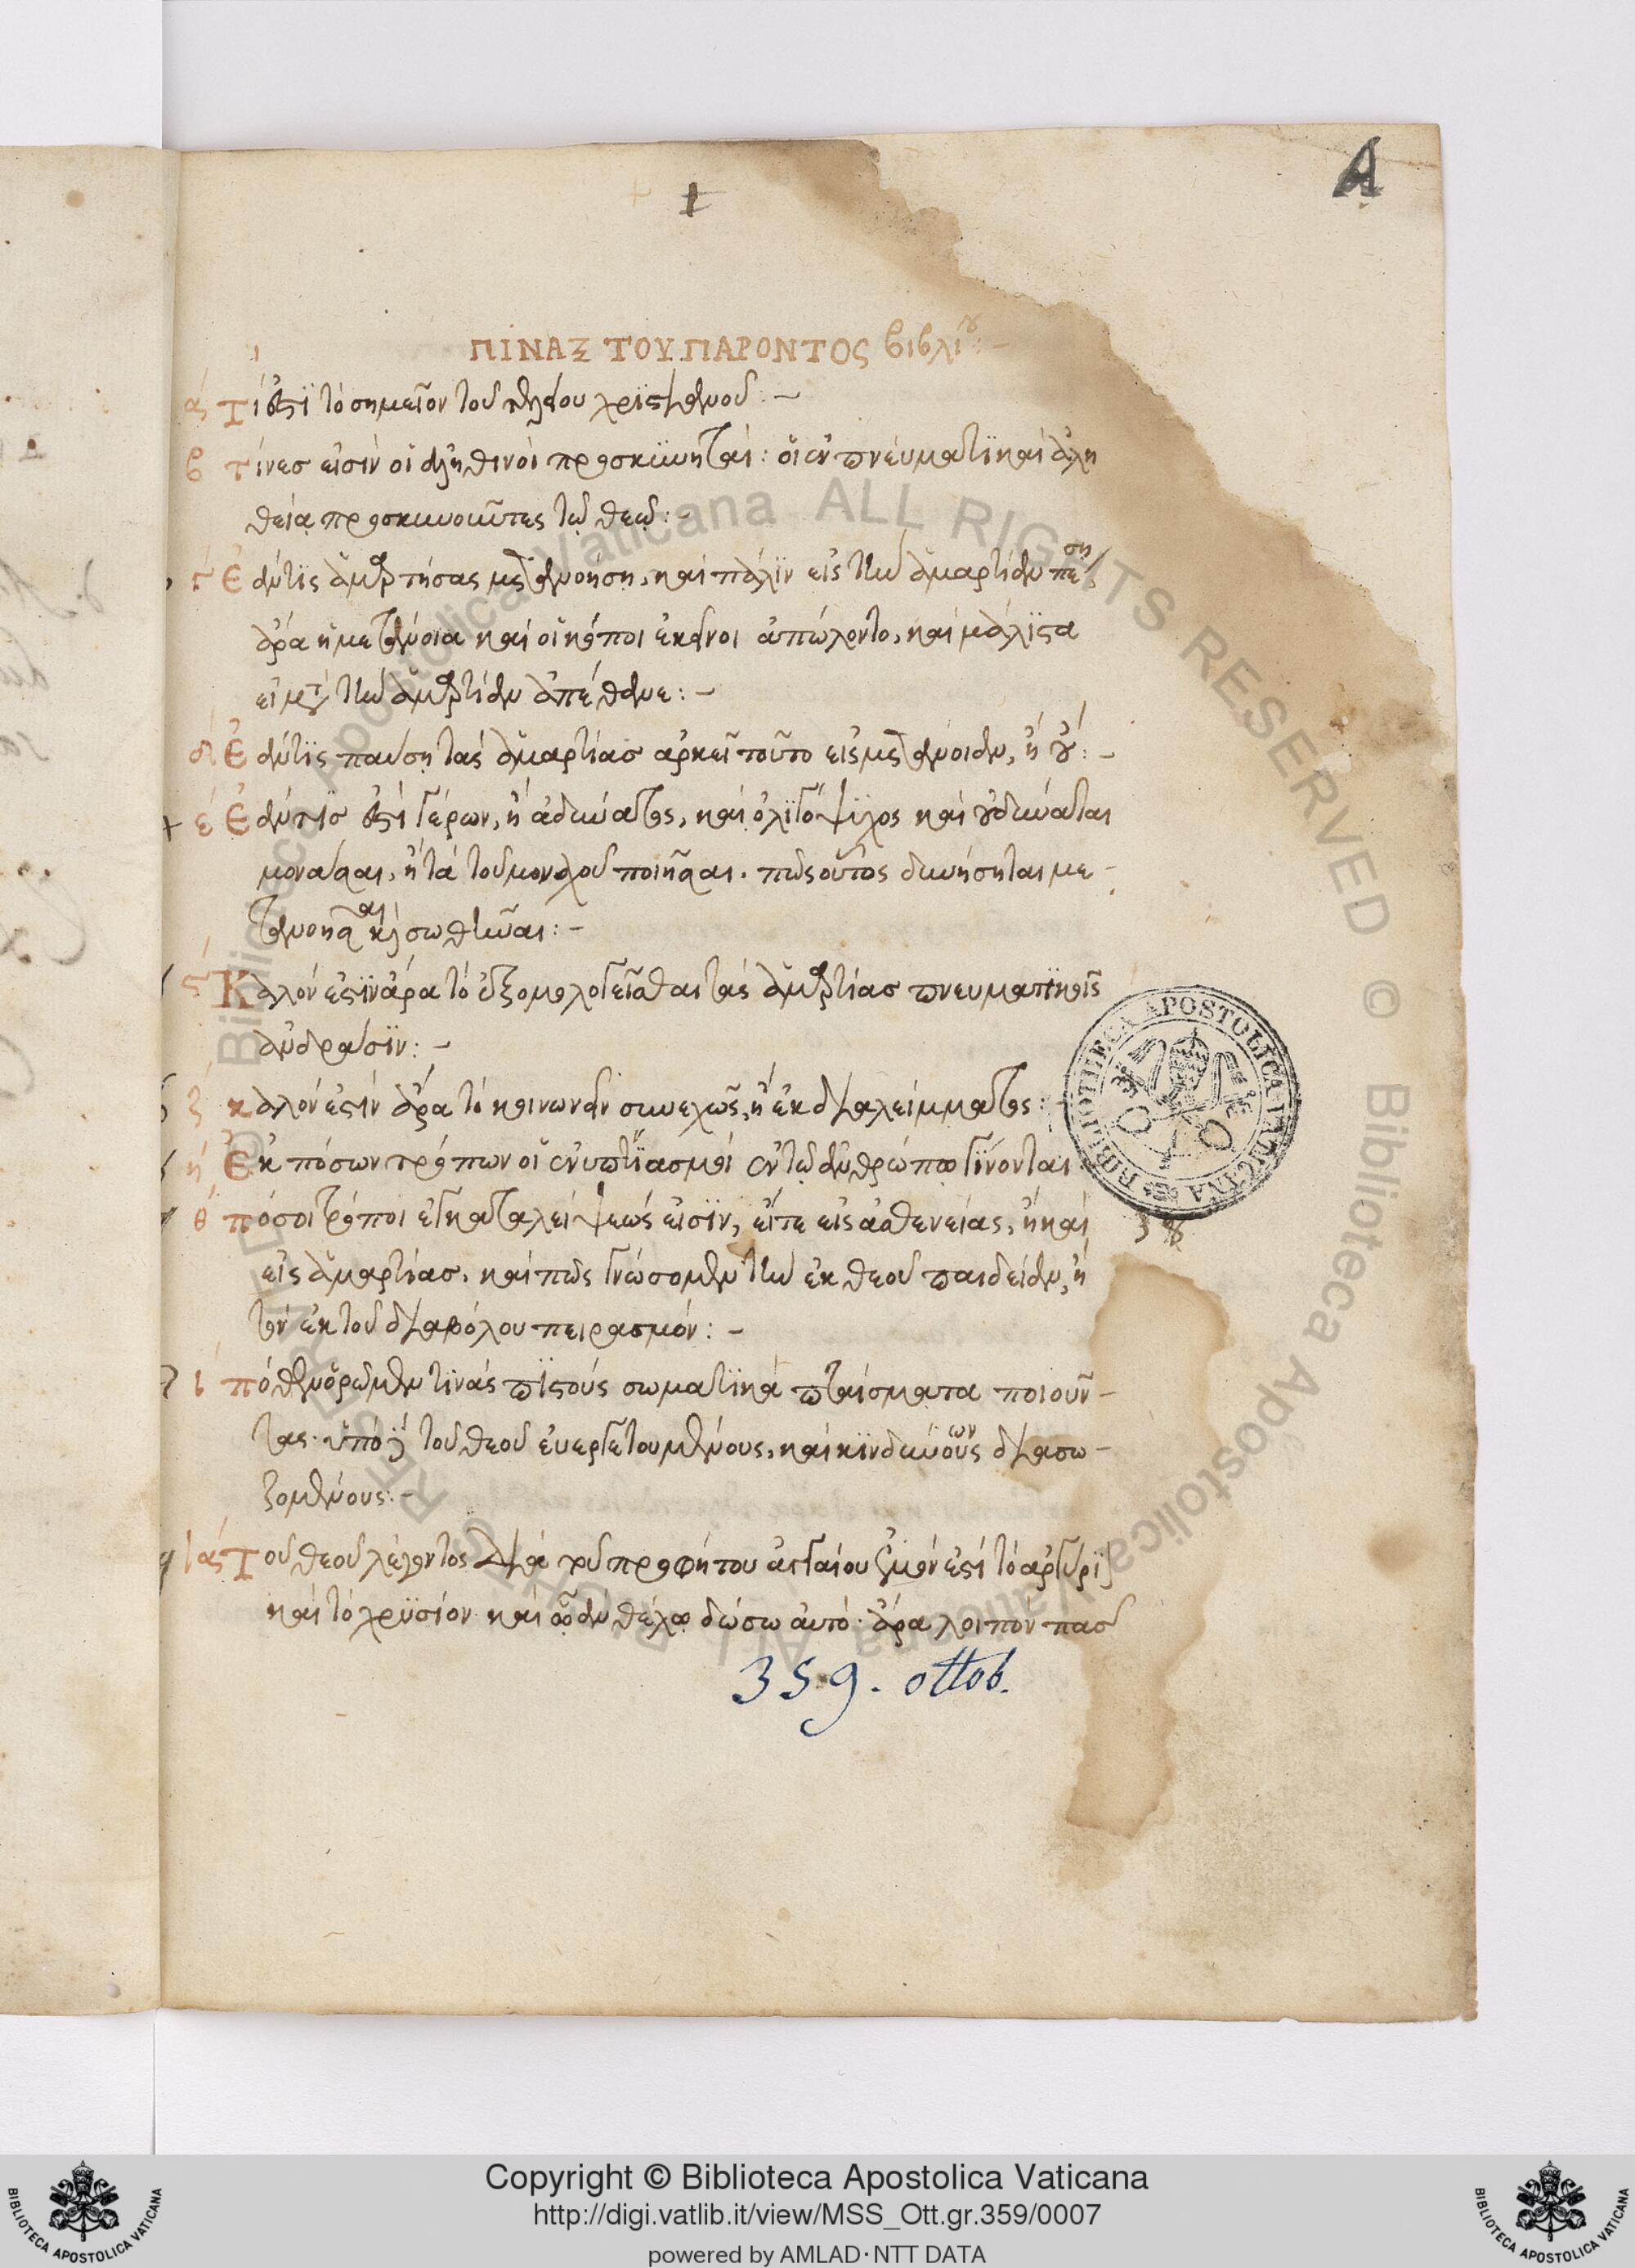 A
ΠΙΝΑΞ ΤΟΥ ΠΑΡΟΝΤΟΣ βιβλίου:-
ά Τί ἐστὶ τὸ σημεῖον τοῦ τελείου χριστϊανοῦ:-
β τίνεσ εἰσὶν οἱ ἀληθινοὶ προσκϋνηταί: οἱ ἐν πνεύματϊ καὶ ἀλη
θεία προσκυνοῦντες τῷ θεῷ:-
γ Ἐάν τϊς ἁμαρτήσας μετανοήση, καὶ πάλϊν εἰς τὴν ἁμαρτίαν πέση
ἆρα ἡ μετάνοια καὶ οἱ κόποι ἐκεῖνοι ἀπώλοντο, καὶ μάλϊστα
εἰ μετὰ τὴν ἁμαρτίαν ἀπέθανε:-
δ Ἐάν τϊς παύση τὰς ἁμαρτίασ ἀρκεῖ τοῦτο εἰς μετάνοιαν, ἢ οὔ:-
έ Ἐάν τϊσ ἐστὶ γέρων, ἢ ἀδύνατος, καὶ ὀλϊγόψϋχος καὶ οὐ δύναται
μονάσαι, ἢ τὰ τοῦ μοναχοῦ ποιῆσαι. πῶς οὗτος δυνήσηται με-
τανοῆσαι καὶ σωθῆναι:-
ς Καλόν ἐστϊν ἄρα τὸ ἐξομολογεῖσθαι τὰς ἁμαρτίασ πνευματϊκοῖς
ἀνδράσϊν:-
ζ καλόν ἐστὶν ἆρα τὸ κοινωνεῖν συνεχῶς, ἢ ἐκ διαλείμματος:-
ή Ἐκ πόσων τρόπων οἱ ἐνυπνϊασμοὶ ἐν τῷ ἀνθρώπω γϊνονται:
θ πόσοι τρόποι ἐγκαταλείψεώς εἰσϊν, εἴτε εἰς ἀσθενείας, ἢ καὶ
εἰς ἁμαρτίασ. καὶ πῶς γνώσομεν τὴν ἐκ θεοῦ παιδείαν, ἢ
τὸν ἐκ τοῦ διαβόλου πειρασμόν:-
ί πόθεν ὁρῶμεν τϊνὰς πϊστοὺς σωματϊκὰ πταίσματα ποιοῦν-
τας. ὑπὸ δὲ τοῦ θεοῦ εὐεργετουμένους, καὶ κϊνδύνων διασω-
ζομένους:-
ιά Τοῦ θεοῦ λέγοντος διὰ τοῦ προφήτου ἀγγαίου ἐμόν ἐστὶ τὸ ἀργύρϊον
καὶ τὸ χρϋσίον καὶ ᾧ ἂν θέλω δώσω αὐτό. ἆρα λοιπὸν πασ
359. ottob.
BIBLIOTHECA APOSTOLICA VATICANA
© Biblioteca Apostolica Vaticana ALL RIGHTS RESERVED
© Biblioteca Apostolica Vaticana ALL RIGHTS RESERVED
Copyright © Biblioteca Apostolica Vaticana
http://digi.vatlib.it/view/MSS_Ott.gr.359/0007
powered by AMLAD·NTT DATA
BIBLIOTECA APOSTOLICA VATICANA
BIBLIOTECA APOSTOLICA VATICANA